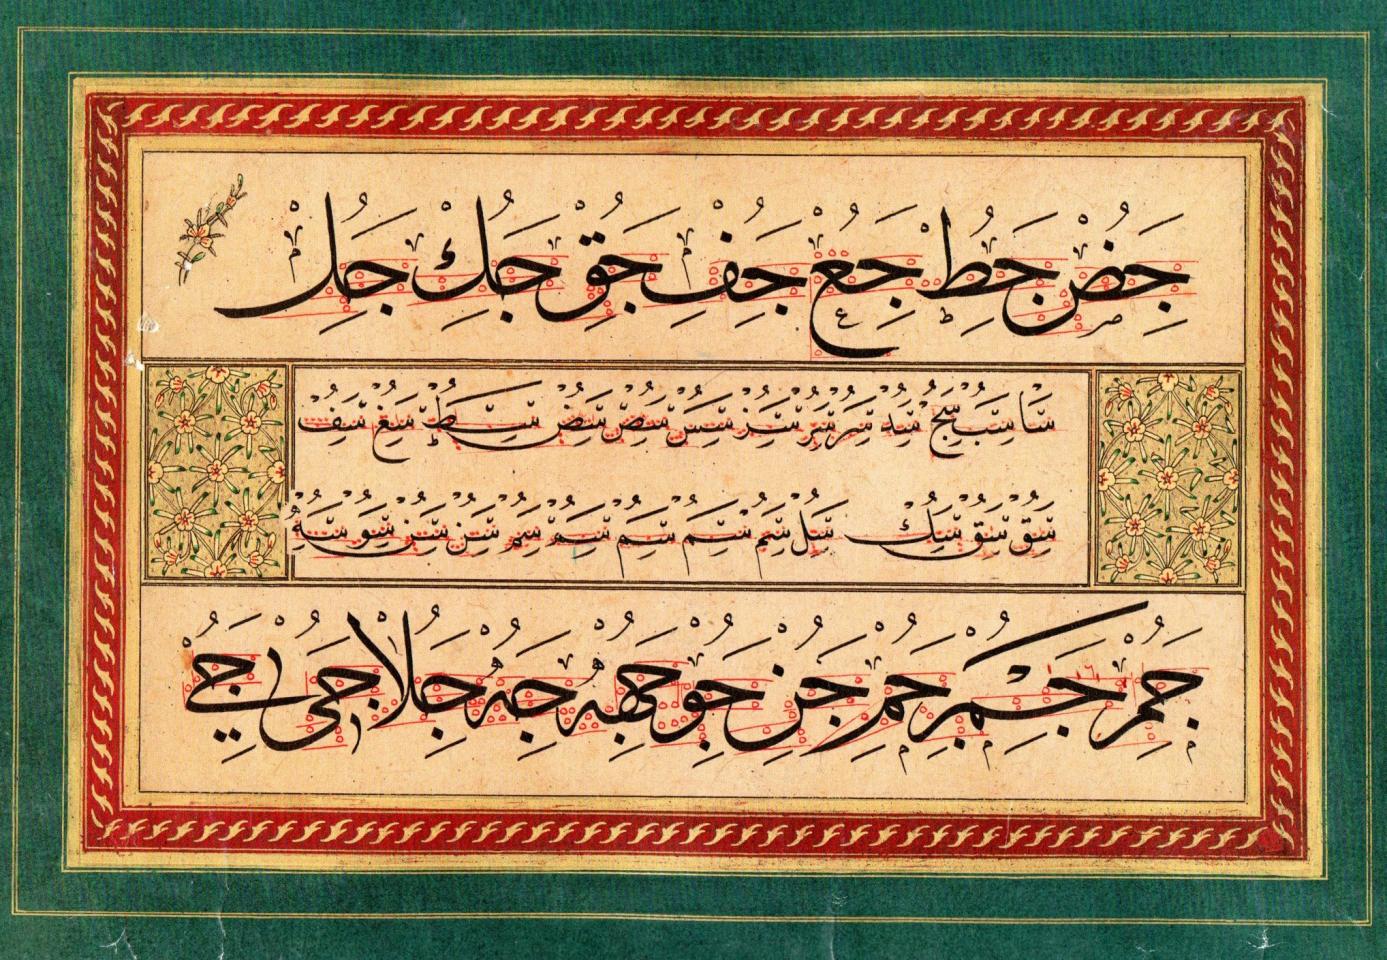 جض جط جع جف جق جك جل
سا سب سج سد سر سر سس سس سص سص سط سع سف
سق سق سك سل سم سم سم سم سم سن سن سو سه
جم جم جم جن جو جه جه جلا جى جى